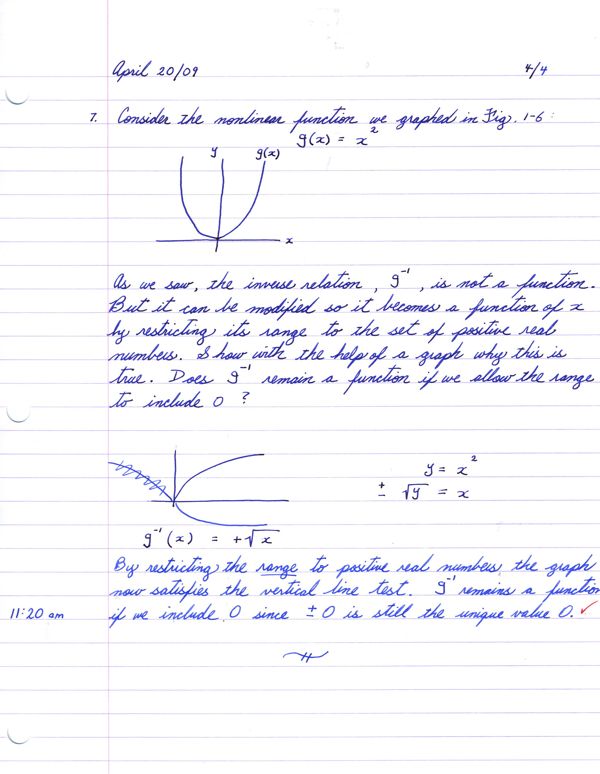 April 20/09 4/4
7. Consider the nonlinear function we graphed in Fig. 1-6:
g(x) = x²
y g(x)
x
As we saw, the inverse relation, g⁻¹, is not a function.
But it can be modified so it becomes a function of x
by restricting its range to the set of positive real
numbers. Show with the help of a graph why this is
true. Does g⁻¹ remain a function if we allow the range
to include 0 ?
y = x²
± √y = x
g⁻¹(x) = +√x
By restricting the range to positive real numbers the graph
now satisfies the vertical line test. g⁻¹ remains a function
11:20 am if we include 0 since ± 0 is still the unique value 0. ✓